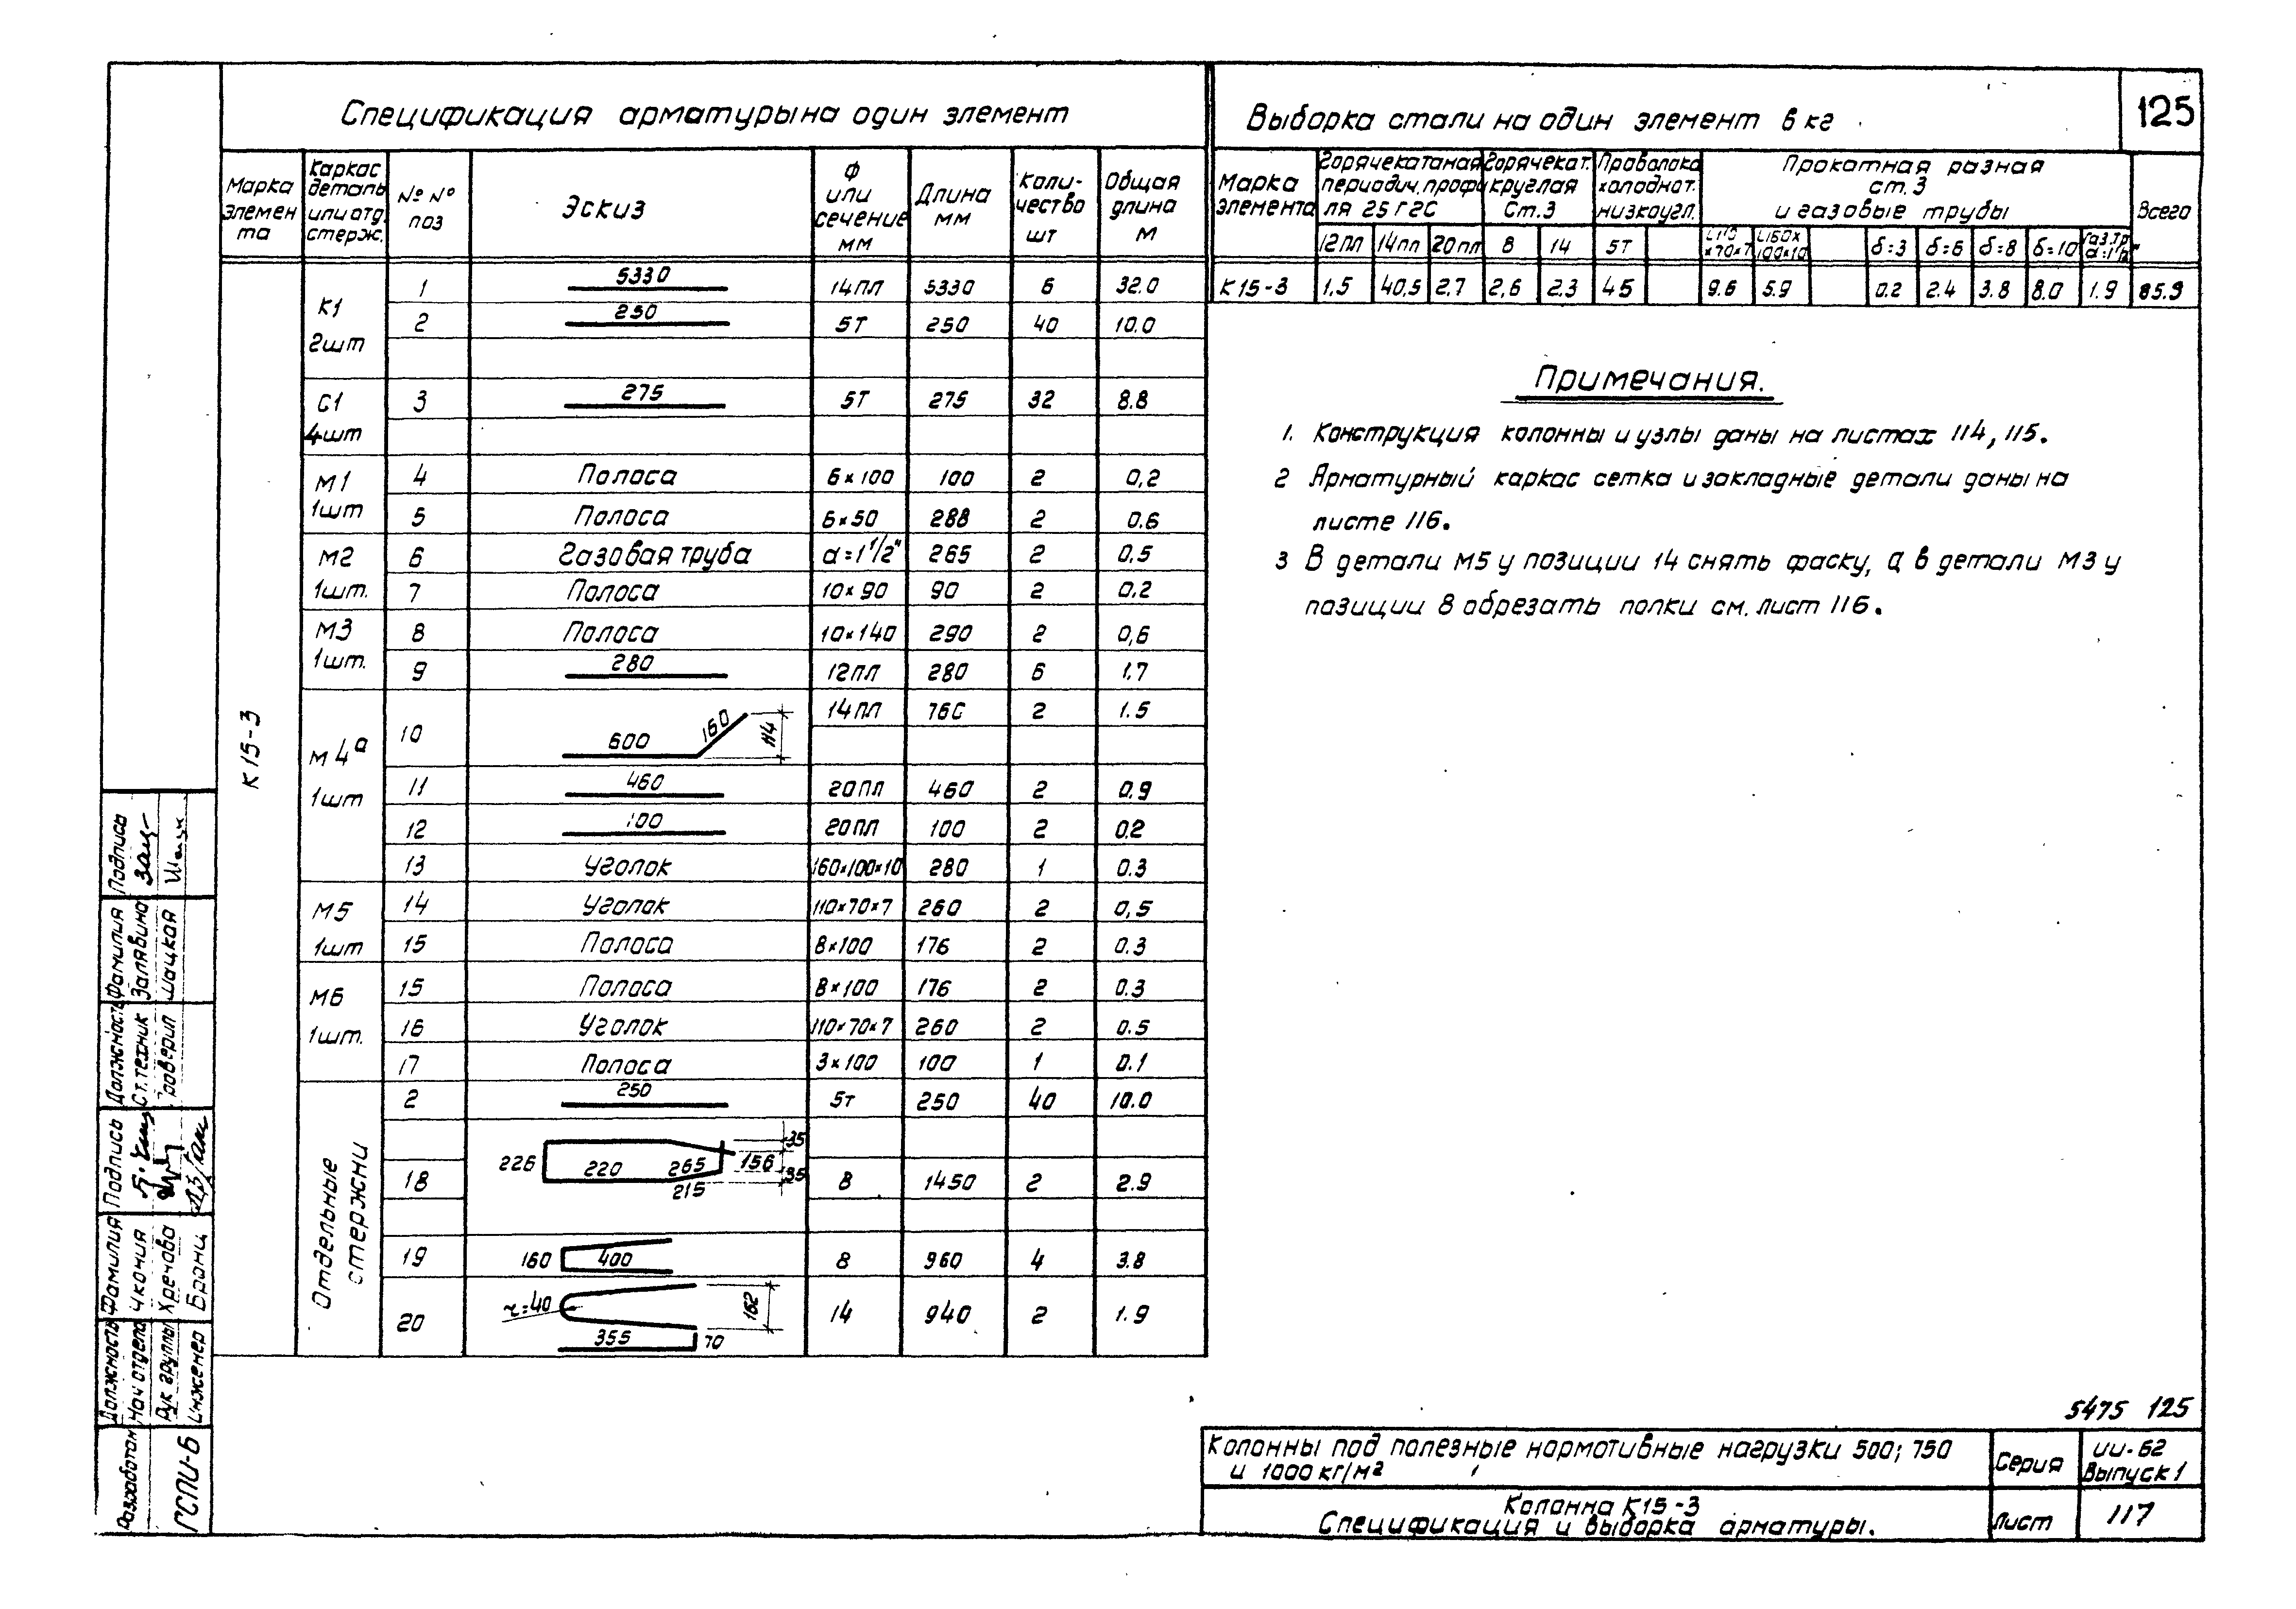 125
Спецификация арматуры на один элемент
Марка элемен та | Каркас деталь или отд. стерж. | №№ поз | Эскиз | Ф или сечение мм | Длина мм | Коли- чество шт | Общая длина м
К15-3
К1 2шт | 1 | 5330 | 14пл | 5330 | 6 | 32.0
2 | 250 | 5т | 250 | 40 | 10.0
С1 4шт | 3 | 275 | 5т | 275 | 32 | 8.8
М1 1шт | 4 | Полоса | 6×100 | 100 | 2 | 0,2
5 | Полоса | 6×50 | 288 | 2 | 0.6
М2 1шт. | 6 | Газовая труба | d=1 1/2" | 265 | 2 | 0,5
7 | Полоса | 10×90 | 90 | 2 | 0,2
М3 1шт. | 8 | Полоса | 10×140 | 290 | 2 | 0,6
9 | 280 | 12пл | 280 | 6 | 1.7
М4а 1шт | 10 | 600 160 114 | 14пл | 760 | 2 | 1.5
11 | 460 | 20пл | 460 | 2 | 0.9
12 | 100 | 20пл | 100 | 2 | 0.2
13 | Уголок | 160×100×10 | 280 | 1 | 0.3
М5 1шт | 14 | Уголок | 110×70×7 | 260 | 2 | 0,5
15 | Полоса | 8×100 | 176 | 2 | 0.3
М6 1шт. | 15 | Полоса | 8×100 | 176 | 2 | 0.3
16 | Уголок | 110×70×7 | 260 | 2 | 0.5
17 | Полоса | 3×100 | 100 | 1 | 0.1
Отдельные стержни | 2 | 250 | 5т | 250 | 40 | 10.0
18 | 226 220 265 215 35 156 35 | 8 | 1450 | 2 | 2.9
19 | 160 400 | 8 | 960 | 4 | 3.8
20 | r=40 162 355 70 | 14 | 940 | 2 | 1.9
Выборка стали на один элемент в кг
Марка элемента | Горячекатаная периодич. профиля 25Г2С | Горячекат. круглая Ст.3 | Проволока холоднот. низкоугл. | Прокатная разная ст.3 и газовые трубы | Всего
12пл | 14пл | 20пл | 8 | 14 | 5т | L110×70×7 | L160×100×10 | δ=3 | δ=6 | δ=8 | δ=10 | Газ.тр. d=1 1/2"
К15-3 | 1,5 | 40,5 | 2.7 | 2,6 | 2.3 | 4.5 | 9.6 | 5.9 | 0.2 | 2.4 | 3.8 | 8.0 | 1.9 | 85.9
Примечания.
1. Конструкция колонны и узлы даны на листах 114, 115.
2 Арматурный каркас сетка и закладные детали даны на
листе 116.
3 В детали М5 у позиции 14 снять фаску, а в детали М3 у
позиции 8 обрезать полки см. лист 116.
5475 125
Колонны под полезные нормативные нагрузки 500; 750
и 1000 кг/м²
Серия
ИИ-62
Выпуск 1
Колонна К15-3
Спецификация и выборка арматуры.
Лист
117
Подпись
Фамилия Залявина Шацкая
Должность Ст.техник Проверил
Подпись
Фамилия Чкония Хречава Бранц
Должность Нач отдела Рук группы Инженер
Разработан ГСПИ-6